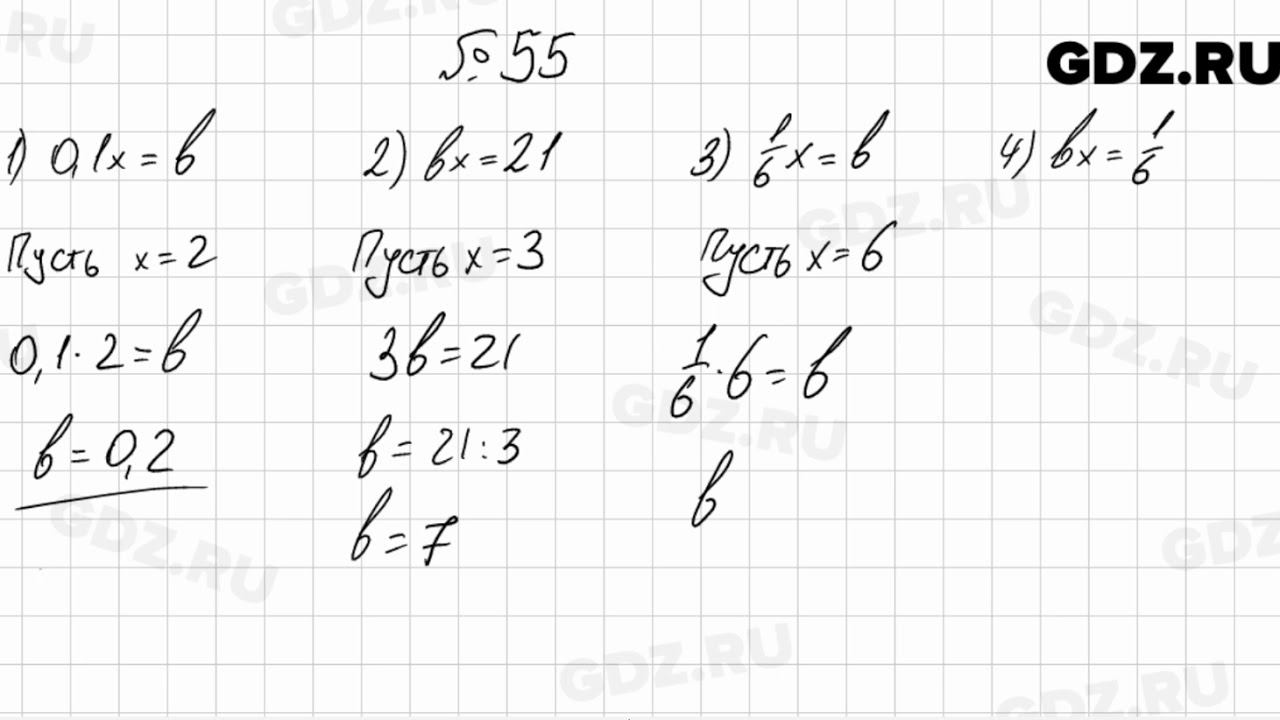 № 55
GDZ.RU
1) 0,1x = в
2) вx = 21
3) 1/6 x = в
4) вx = 1/6
Пусть x = 2
Пусть x = 3
Пусть x = 6
0,1 · 2 = в
3в = 21
1/6 · 6 = в
в = 0,2
в = 21 : 3
в
в = 7